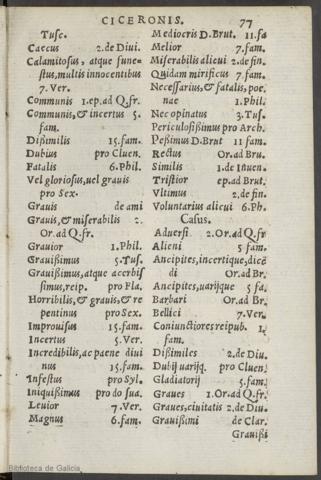 CICERONIS. 77
Tusc.
Caecus 2.de Diui.
Calamitosus, atque fune-
stus,multis innocentibus
7.Ver.
Communis 1.ep.ad Q.fr.
Communis,& incertus 5.
fam.
Dißimilis 15.fam.
Dubius pro Cluen.
Fatalis 6.Phil.
Vel gloriosus,uel grauis
pro Sex.
Grauis de ami
Grauis,& miserabilis 2.
Or.ad Q.fr.
Grauior 1.Phil.
Grauißimus 5.Tus.
Grauißimus,atque acerbis
simus,reip. pro Fla.
Horribilis,& grauis,& re
pentinus pro Sex.
Improuisus 15.fam.
Incertus 5.Ver.
Incredibilis,ac paene diui
nus 15.fam.
Infestus pro Syl.
Iniquißimus pro do sua.
Leuior 7.Ver.
Magnus 6.fam.
Mediocris D.Brut. 11.fa
Melior 7.fam.
Miserabilis alicui 2.de fin.
Quidam mirificus 7.fam.
Necessarius,& fatalis,poe.
nae 1.Phil.
Nec opinatus 3.Tus.
Periculosißimus pro Arch.
Peßimus D.Brut 11 fam.
Rectus Or.ad Bru.
Similis 1.de Inuen.
Tristior ep.ad Brut.
Vltimus 2.de fin.
Voluntarius alicui 6.Ph.
Casus.
Aduersi 2.Or.ad Q.fr
Alieni 5 fam.
Ancipites,incertique,dicē
di Or.ad Br.
Ancipites,uarijque 5 fa.
Barbari Or.ad Br.
Bellici 7.Ver.
Coniunctiores reipub. 1.
fam.
Dißimiles 2.de Diu.
Dubij uarijq. pro Cluen.
Gladiatorij 5.fam.
Graues 1.Or.ad Q.fr.
Graues,ciuitatis 2.de Diu.
Grauißimi de Clar.
Grauißi
Biblioteca de Galicia